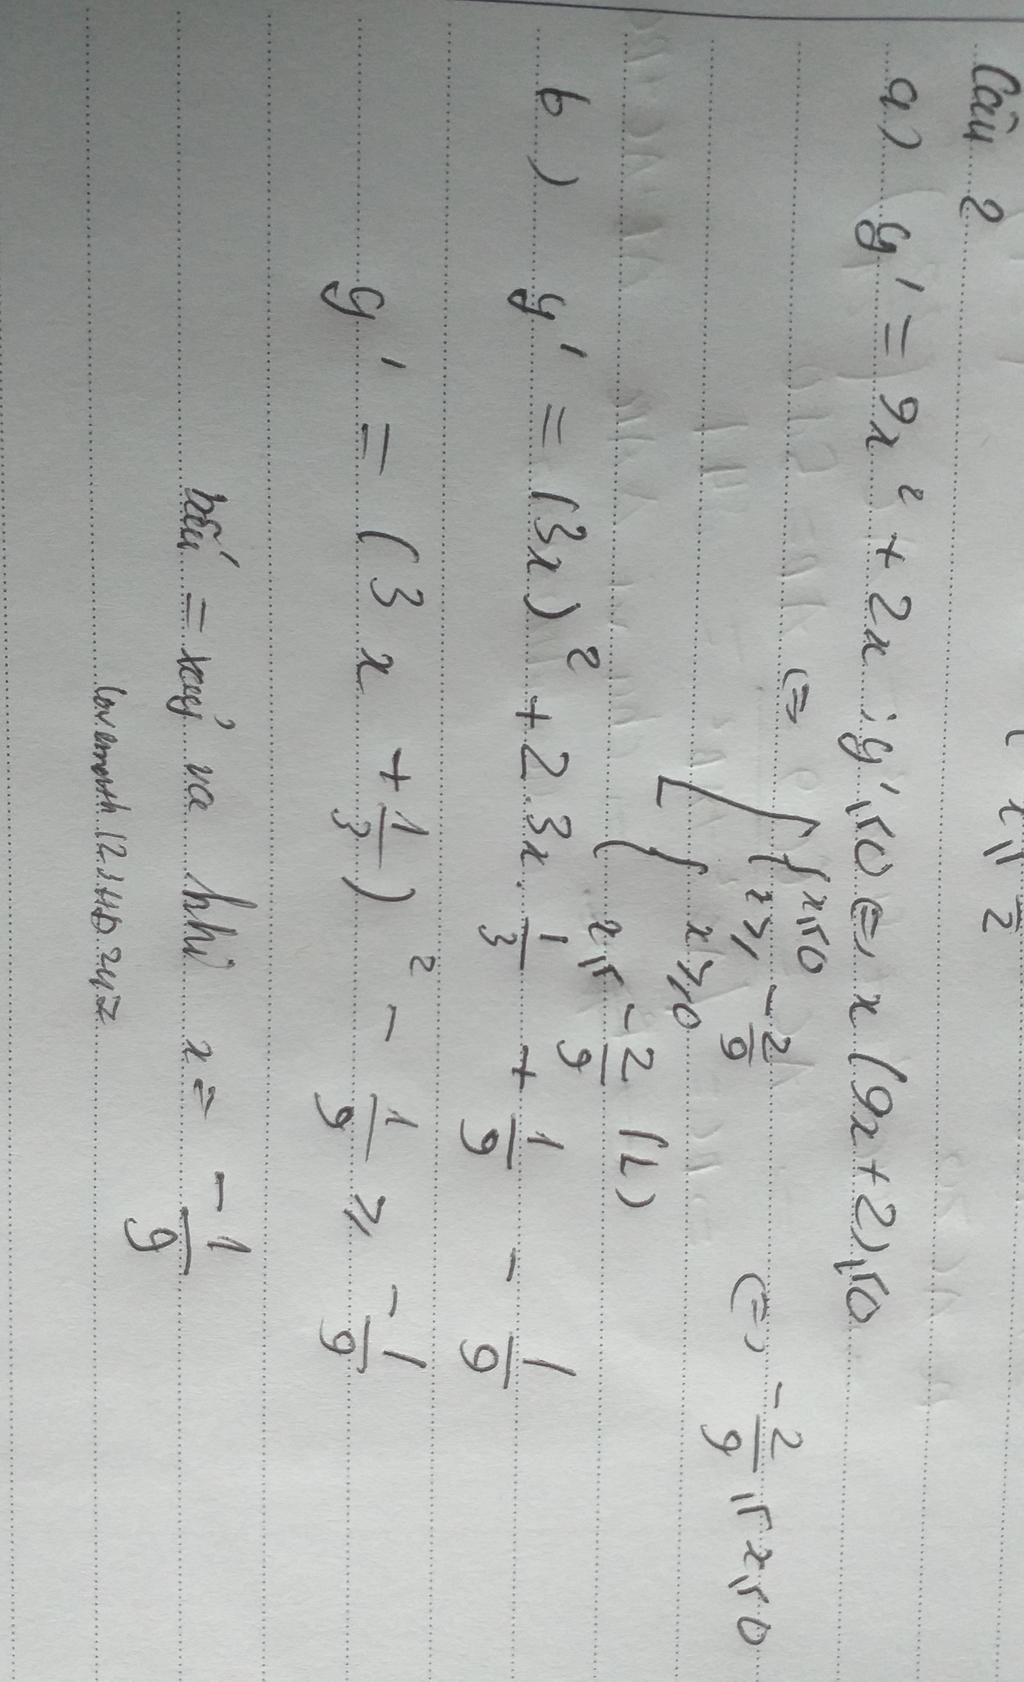 x ≤ /2
Câu 2
a) y' = 9x² + 2x ; y' ≤ 0 ⇔ x(9x+2) ≤ 0
⇔ [ { x ≤ 0
x ≥ -2/9 ⇔ -2/9 ≤ x ≤ 0
{ x ≥ 0
x ≤ -2/9 (L)
b) y' = (3x)² + 2.3x.1/3 + 1/9 - 1/9
y' = (3x + 1/3)² - 1/9 ≥ -1/9
dấu = xảy ra khi x = -1/9